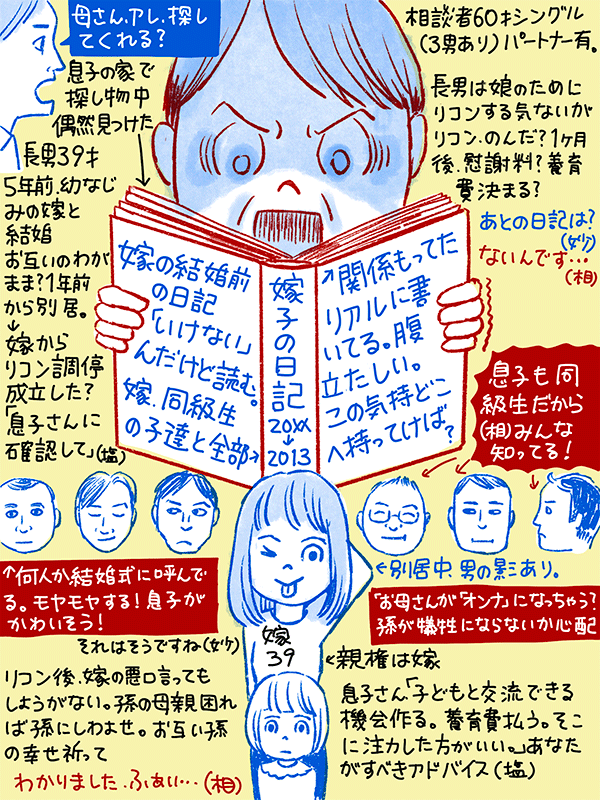 母さん、アレ、探し
てくれる?
相談者60才シングル
(3男あり)パートナー有。
息子の家で
探し物中
偶然見つけた
長男は娘のために
リコンする気ないが
リコン、のんだ?1ヶ月
後、慰謝料?養育
費決まる?
あとの日記は?
(妙)
ないんです…
(相)
長男39才
5年前、幼なじ
みの嫁と
結婚
お互いのわが
まま?1年前
から別居。
↓
嫁から
リコン調停
成立した?
「息子さんに
確認して」(塩)
嫁の結婚前
の日記
「いけない」
んだけど読む。
嫁、同級生
の子達と全部→
嫁子の日記
20XX
↓
2013
↗関係もってた
リアルに書
いてる。腹
立たしい。
この気持どこ
へ持ってけば?
息子も同
級生だから
(相)みんな
知ってる!
↑何人か結婚式に呼んで
る。モヤモヤする!息子が
かわいそう!
それはそうですね(妙)
嫁
39
別居中、男の影あり。
「お母さんが「オンナ」になっちゃう?
孫が犠牲にならないか心配
←親権は嫁
リコン後、嫁の悪口言っても
しようがない。孫の母親困れ
ば孫にしわよせ。お互い孫
の幸せ祈って
わかりました、ふぁい…(相)
息子さん「子どもと交流できる
機会作る。養育費払う。そこ
に注力した方がいい。」あなた
がすべきアドバイス(塩)